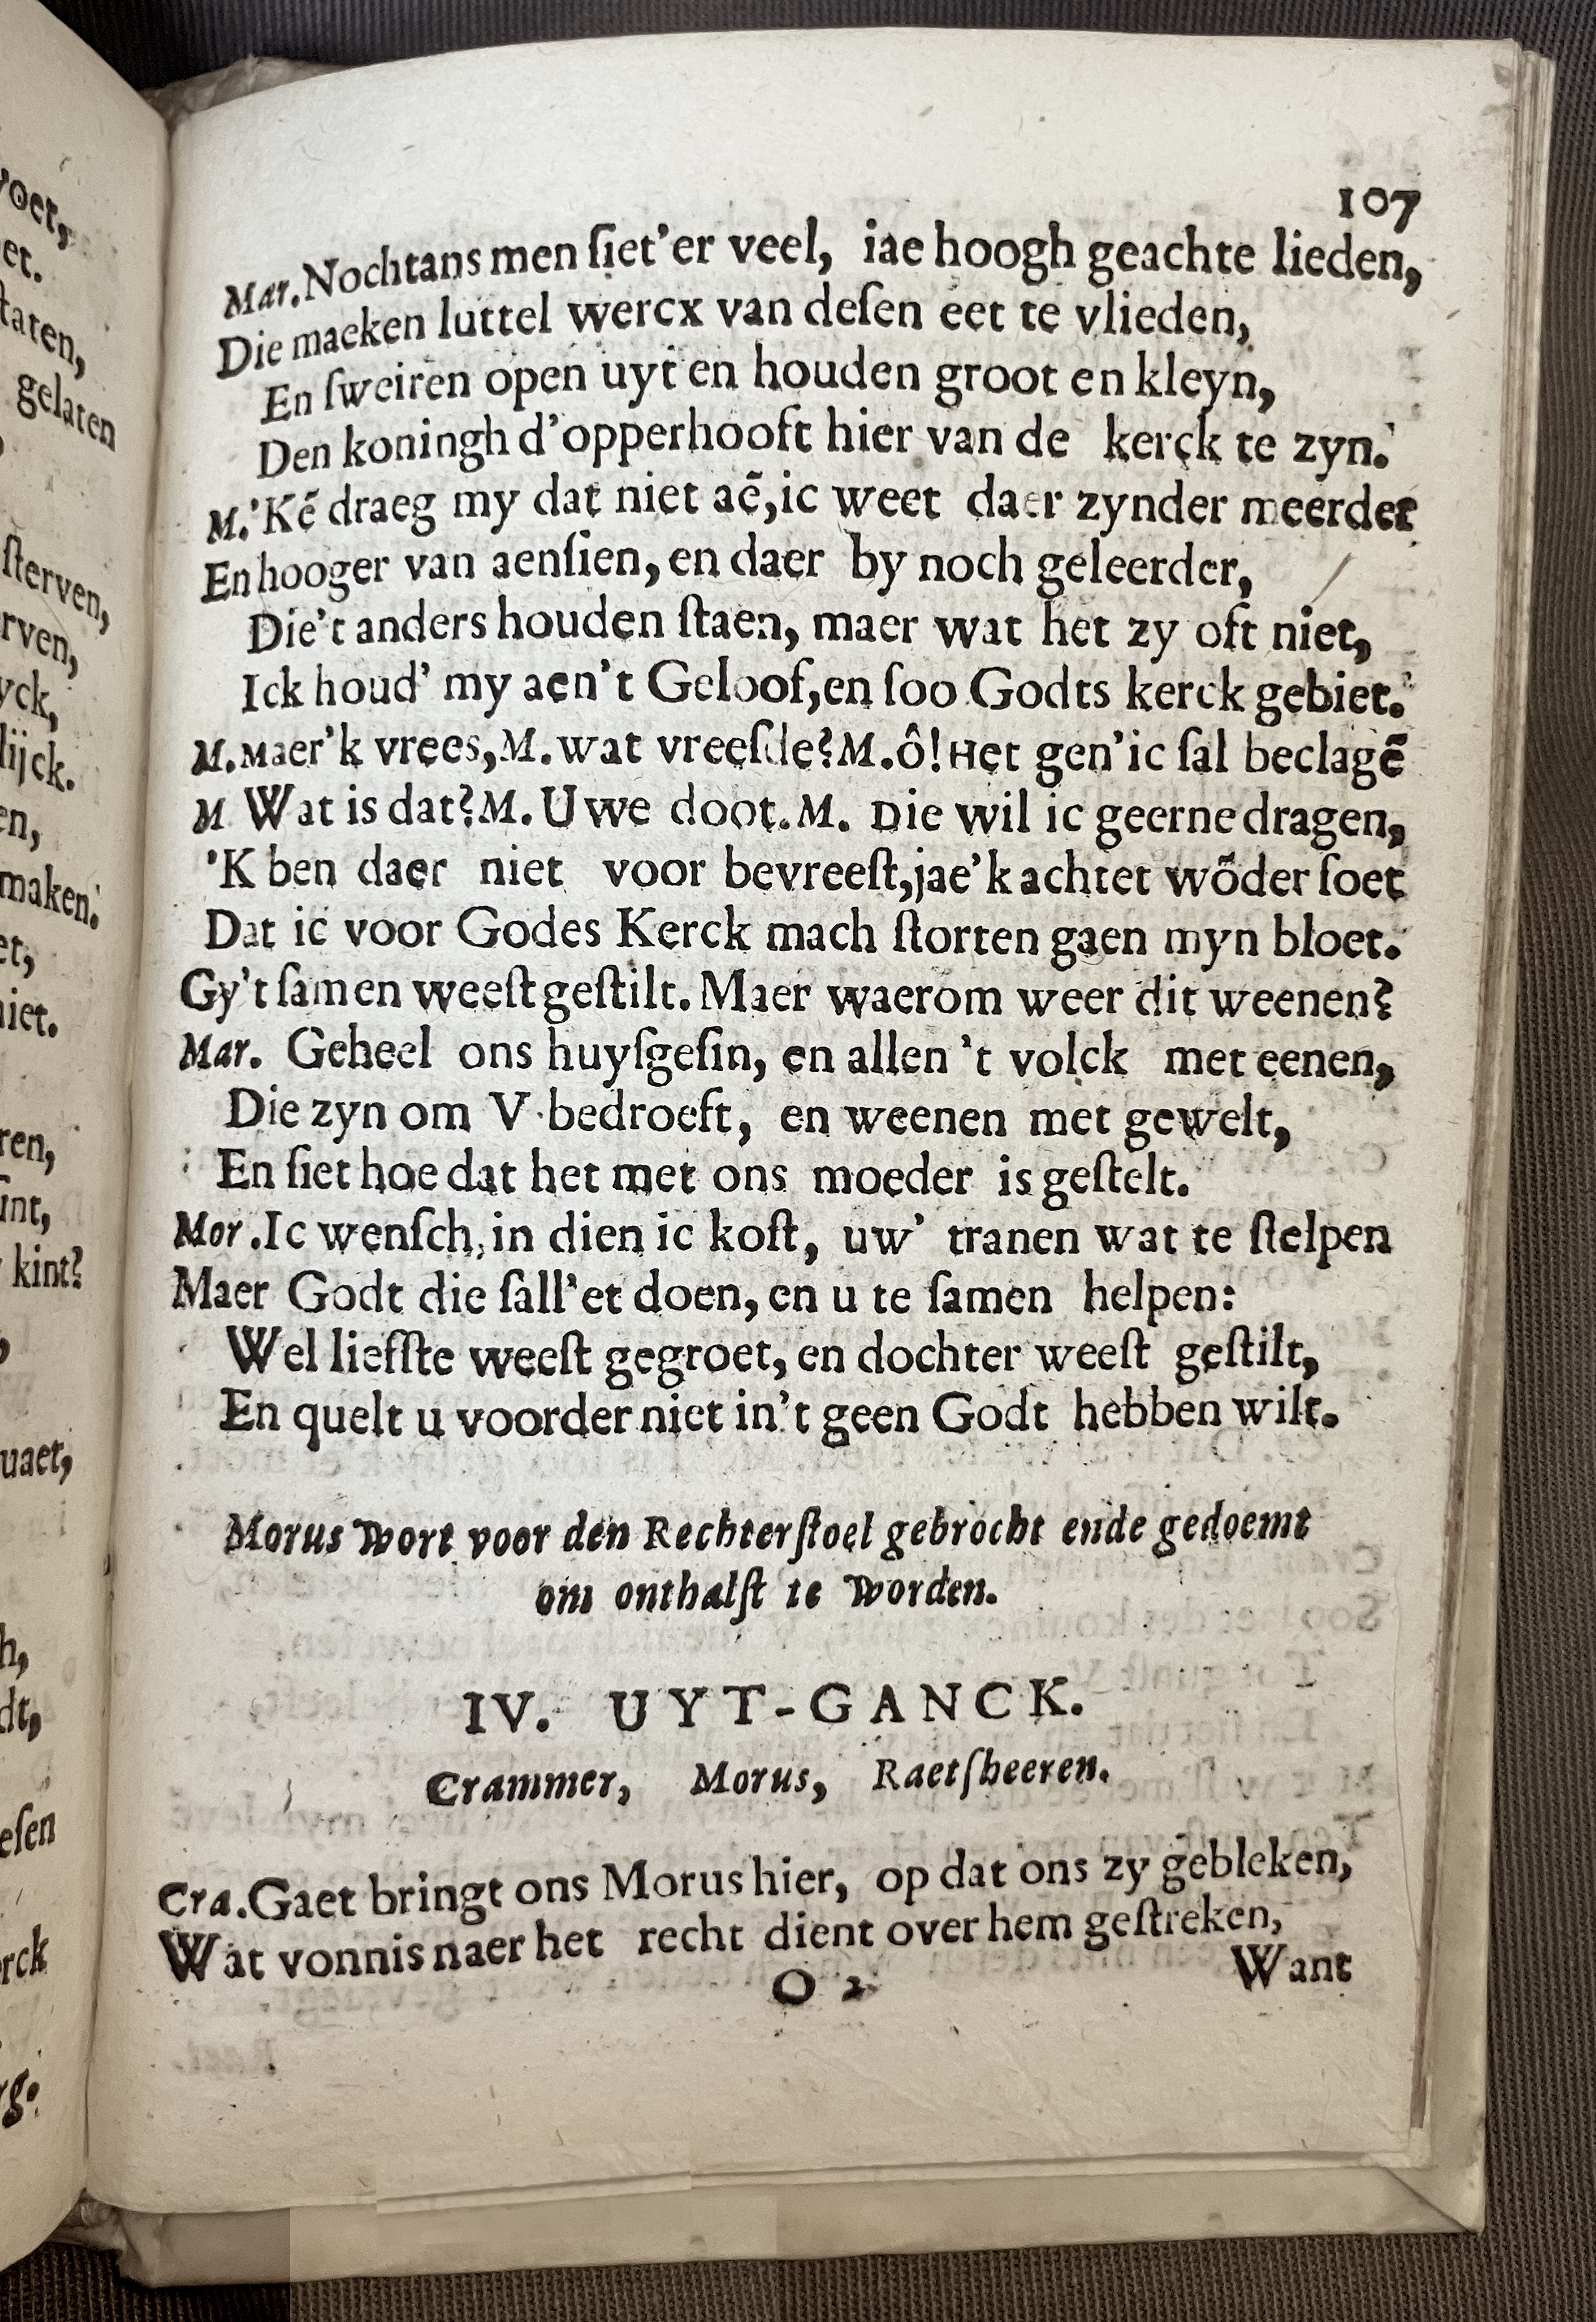 107
Mar. Nochtans men ſiet'er veel, iae hoogh geachte lieden,
Die maeken luttel wercx van deſen eet te vlieden,
En ſweiren open uyt en houden groot en kleyn,
Den koningh d'opperhooft hier van de kerck te zyn.
M. 'Kẽ draeg my dat niet aẽ, ic weet daer zynder meerder
En hooger van aenſien, en daer by noch geleerder,
Die't anders houden ſtaen, maer wat het zy oft niet,
Ick houd' my aen't Geloof, en ſoo Godts kerck gebiet.
M. Maer'k vrees, M. wat vreeſde? M. ô! Het gen'ic ſal beclagẽ
M Wat is dat? M. Uwe doot. M. Die wil ic geerne dragen,
'K ben daer niet voor bevreeſt, jae'k achtet wõder ſoet
Dat ic voor Godes Kerck mach ſtorten gaen myn bloet.
Gy't ſamen weeſt geſtilt. Maer waerom weer dit weenen?
Mar. Geheel ons huyſgeſin, en allen 't volck met eenen,
Die zyn om V bedroeft, en weenen met gewelt,
En ſiet hoe dat het met ons moeder is geſtelt.
Mor. Ic wenſch, in dien ic koſt, uw' tranen wat te ſtelpen
Maer Godt die ſall'et doen, en u te ſamen helpen:
Wel liefſte weeſt gegroet, en dochter weeſt geſtilt,
En quelt u voorder niet in't geen Godt hebben wilt.
Morus wort voor den Rechterſtoel gebrocht ende gedoemt
om onthalſt te worden.
IV. UYT-GANCK.
Crammer, Morus, Raetſheeren.
Cra. Gaet bringt ons Morus hier, op dat ons zy gebleken,
Wat vonnis naer het recht dient over hem geſtreken,
O 2
Want